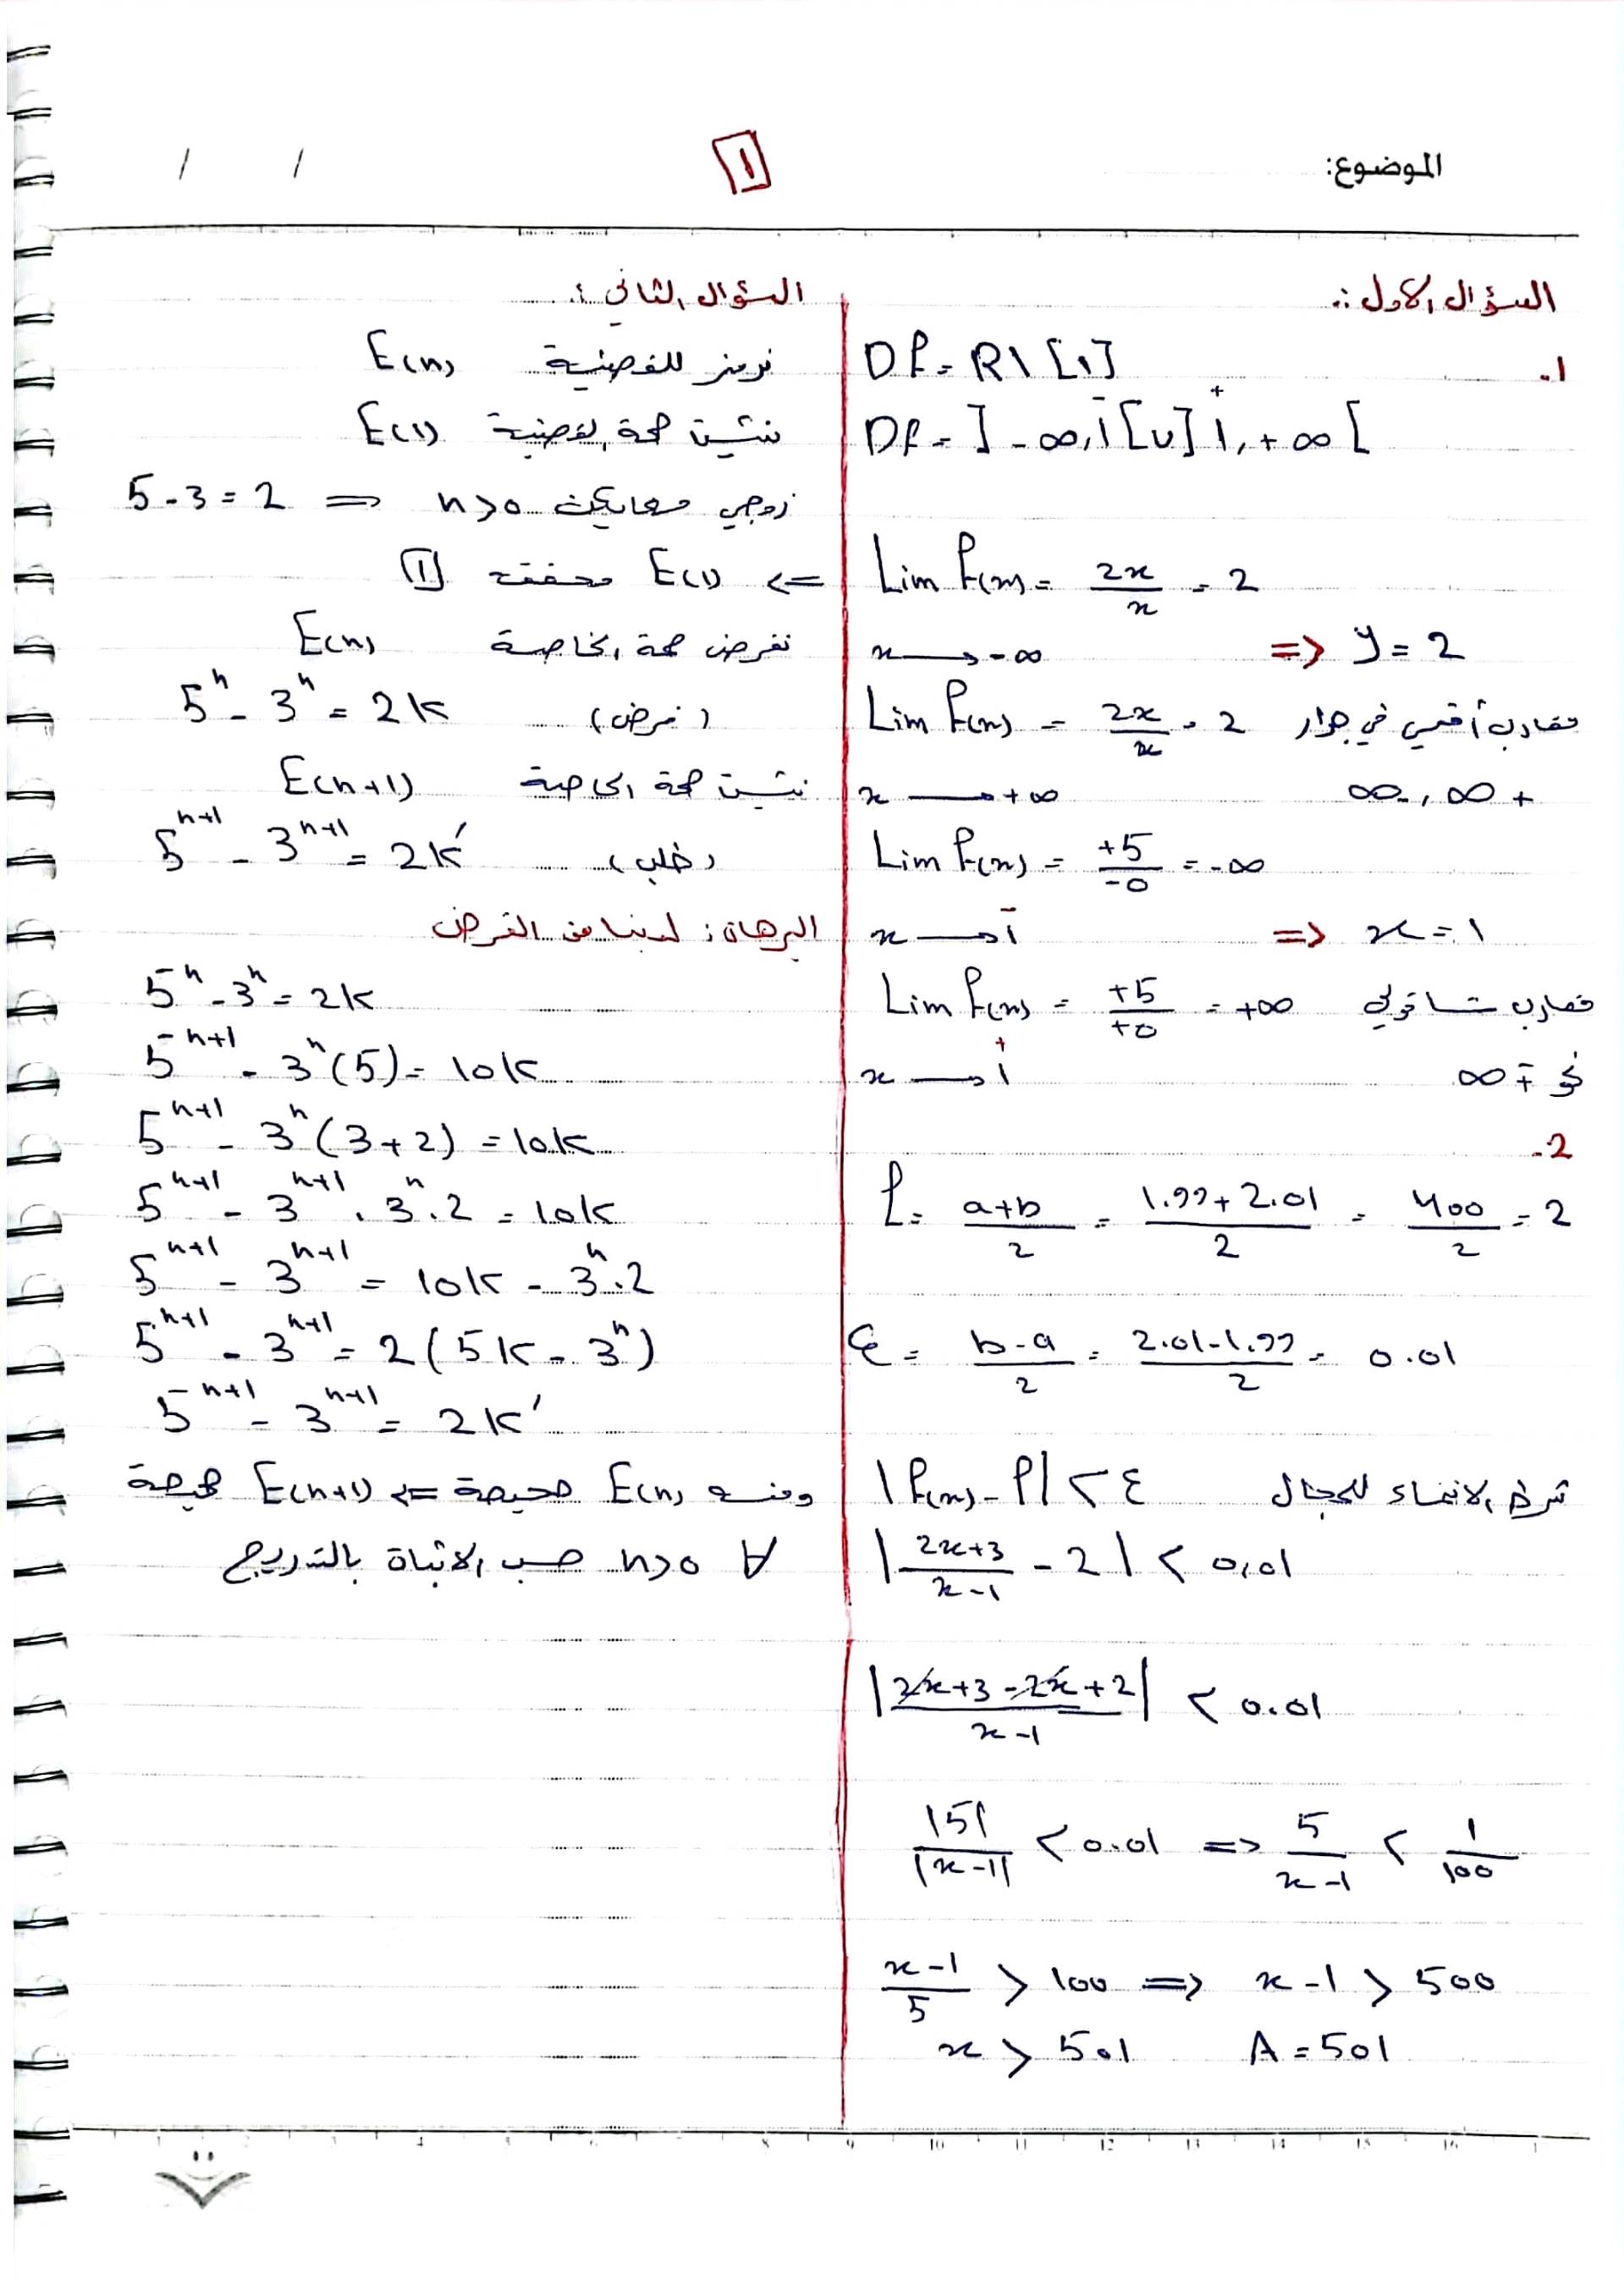 الموضوع:
1
/ /
السؤال الاول:
1.
Df = R\ [1]
Df = ]-∞, 1⁻[ ∪ ]1⁺, +∞[
Lim f(x) = 2x/x = 2
x → -∞ => y = 2
Lim f(x) = 2x/x = 2 مقارب أفقي في جوار
x → +∞ +∞, -∞
Lim f(x) = +5/-0 = -∞
x → 1⁻ => x = 1
Lim f(x) = +5/+0 = +∞ مقارب شاقولي
x → 1⁺ نحو ∓∞
2.
l = a+b/2 = 1.99+2.01/2 = 400/2 = 2
ε = b-a/2 = 2.01-1.99/2 = 0.01
شرط الانتماء للمجال |f(x) - l| < ε
|2x+3/x-1 - 2| < 0,01
|2x+3-2x+2/x-1| < 0.01
|5|/|x-1| < 0.01 => 5/x-1 < 1/100
x-1/5 > 100 => x-1 > 500
x > 501 A = 501
السؤال الثاني:
نرمز للقضية E(n)
نثبت صحة القضية E(1)
زوجي معايكت n>0 => 5-3=2
<= E(1) محققة 1
نفرض صحة الخاصة E(n)
(فرض) 5ⁿ - 3ⁿ = 2K
نثبت صحة الخاصة E(n+1)
(طلب) 5ⁿ⁺¹ - 3ⁿ⁺¹ = 2K'
البرهان: لدينا من الفرض
5ⁿ - 3ⁿ = 2K
5ⁿ⁺¹ - 3ⁿ(5) = 10K
5ⁿ⁺¹ - 3ⁿ(3+2) = 10K
5ⁿ⁺¹ - 3ⁿ⁺¹ . 3ⁿ.2 = 10K
5ⁿ⁺¹ - 3ⁿ⁺¹ = 10K - 3ⁿ.2
5ⁿ⁺¹ - 3ⁿ⁺¹ = 2(5K - 3ⁿ)
5ⁿ⁺¹ - 3ⁿ⁺¹ = 2K'
ومنه E(n) صحيحة <= E(n+1) صحيحة
∀ n>0 حسب الاثباة بالتدريج